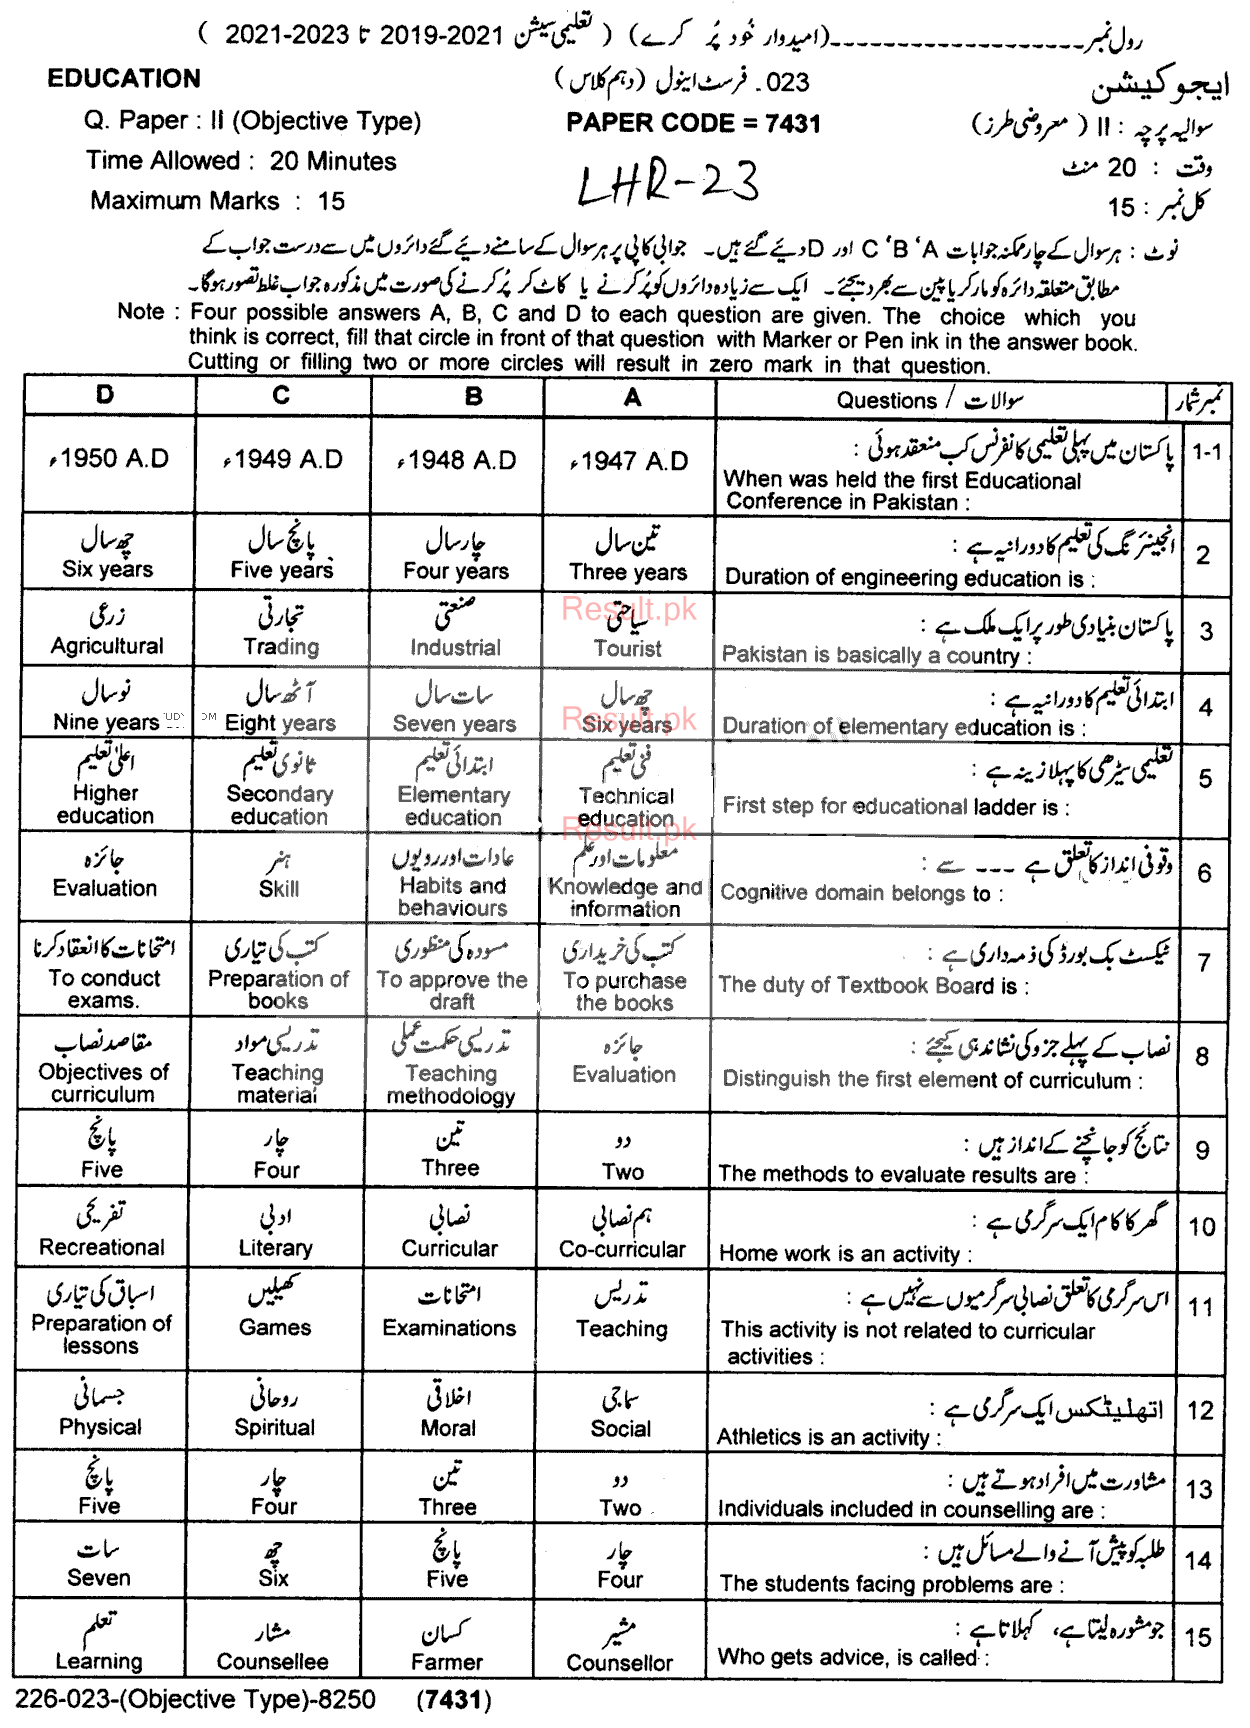 رول نمبر ـــــــــــــــــــــ (امیدوار خود پُر کرے) ( تعلیمی سیشن 2021-2019 تا 2023-2021 )
EDUCATION 023۔ فرسٹ اینول (دہم کلاس) ایجوکیشن
Q. Paper : II (Objective Type) PAPER CODE = 7431 سوالیہ پرچہ : II ( معروضی طرز)
Time Allowed : 20 Minutes LHR-23 وقت : 20 منٹ
Maximum Marks : 15 کل نمبر : 15
نوٹ : ہر سوال کے چار ممکنہ جوابات A ‘ B ‘ C اور D دیئے گئے ہیں۔ جوابی کاپی پر ہر سوال کے سامنے دیئے گئے دائروں میں سے درست جواب کے
مطابق متعلقہ دائرہ کو مارکر یا پین سے بھر دیجئے۔ ایک سے زیادہ دائروں کو پُر کرنے یا کاٹ کر پُر کرنے کی صورت میں مذکورہ جواب غلط تصور ہوگا۔
Note : Four possible answers A, B, C and D to each question are given. The choice which you
think is correct, fill that circle in front of that question with Marker or Pen ink in the answer book.
Cutting or filling two or more circles will result in zero mark in that question.
D C B A Questions / سوالات نمبر شمار
پاکستان میں پہلی تعلیمی کانفرنس کب منعقد ہوئی : 1-1
1950 A.D ء 1949 A.D ء 1948 A.D ء 1947 A.D ء
When was held the first Educational
Conference in Pakistan :
چھ سال پانچ سال چار سال تین سال انجینئرنگ کی تعلیم کا دورانیہ ہے : 2
Six years Five years Four years Three years Duration of engineering education is :
زرعی تجارتی صنعتی سیاحتی پاکستان بنیادی طور پر ایک ملک ہے : 3
Result.pk
Agricultural Trading Industrial Tourist Pakistan is basically a country :
نو سال آٹھ سال سات سال چھ سال ابتدائی تعلیم کا دورانیہ ہے : 4
Result.pk
Nine years Eight years Seven years Six years Duration of elementary education is :
اعلیٰ تعلیم ثانوی تعلیم ابتدائی تعلیم فنی تعلیم تعلیمی سیڑھی کا پہلا زینہ ہے : 5
Higher Secondary Elementary Technical First step for educational ladder is :
education education education education
Result.pk
جائزہ ہنر عادات اور رویوں معلومات اور علم وقوفی انداز کا تعلق ہے ۔۔۔ سے : 6
Evaluation Skill Habits and Knowledge and Cognitive domain belongs to :
behaviours information
امتحانات کا انعقاد کرنا کتب کی تیاری مسودہ کی منظوری کتب کی خریداری ٹیکسٹ بک بورڈ کی ذمہ داری ہے : 7
To conduct Preparation of To approve the To purchase The duty of Textbook Board is :
exams. books draft the books
مقاصد نصاب تدریسی مواد تدریسی حکمت عملی جائزہ نصاب کے پہلے جزو کی نشاندہی کیجئے : 8
Objectives of Teaching Teaching Evaluation Distinguish the first element of curriculum :
curriculum material methodology
پانچ چار تین دو نتائج کو جانچنے کے انداز ہیں : 9
Five Four Three Two The methods to evaluate results are :
تفریحی ادبی نصابی ہم نصابی گھر کا کام ایک سرگرمی ہے : 10
Recreational Literary Curricular Co-curricular Home work is an activity :
اسباق کی تیاری کھیلیں امتحانات تدریس اس سرگرمی کا تعلق نصابی سرگرمیوں سے نہیں ہے : 11
Preparation of Games Examinations Teaching This activity is not related to curricular
lessons activities :
جسمانی روحانی اخلاقی سماجی اتھلیٹکس ایک سرگرمی ہے : 12
Physical Spiritual Moral Social Athletics is an activity :
پانچ چار تین دو مشاورت میں افراد ہوتے ہیں : 13
Five Four Three Two Individuals included in counselling are :
سات چھ پانچ چار طلبہ کو پیش آنے والے مسائل ہیں : 14
Seven Six Five Four The students facing problems are :
تعلم مشار کسان مشیر جو مشورہ لیتا ہے، کہلاتا ہے : 15
Learning Counsellee Farmer Counsellor Who gets advice, is called :
226-023-(Objective Type)-8250 (7431)